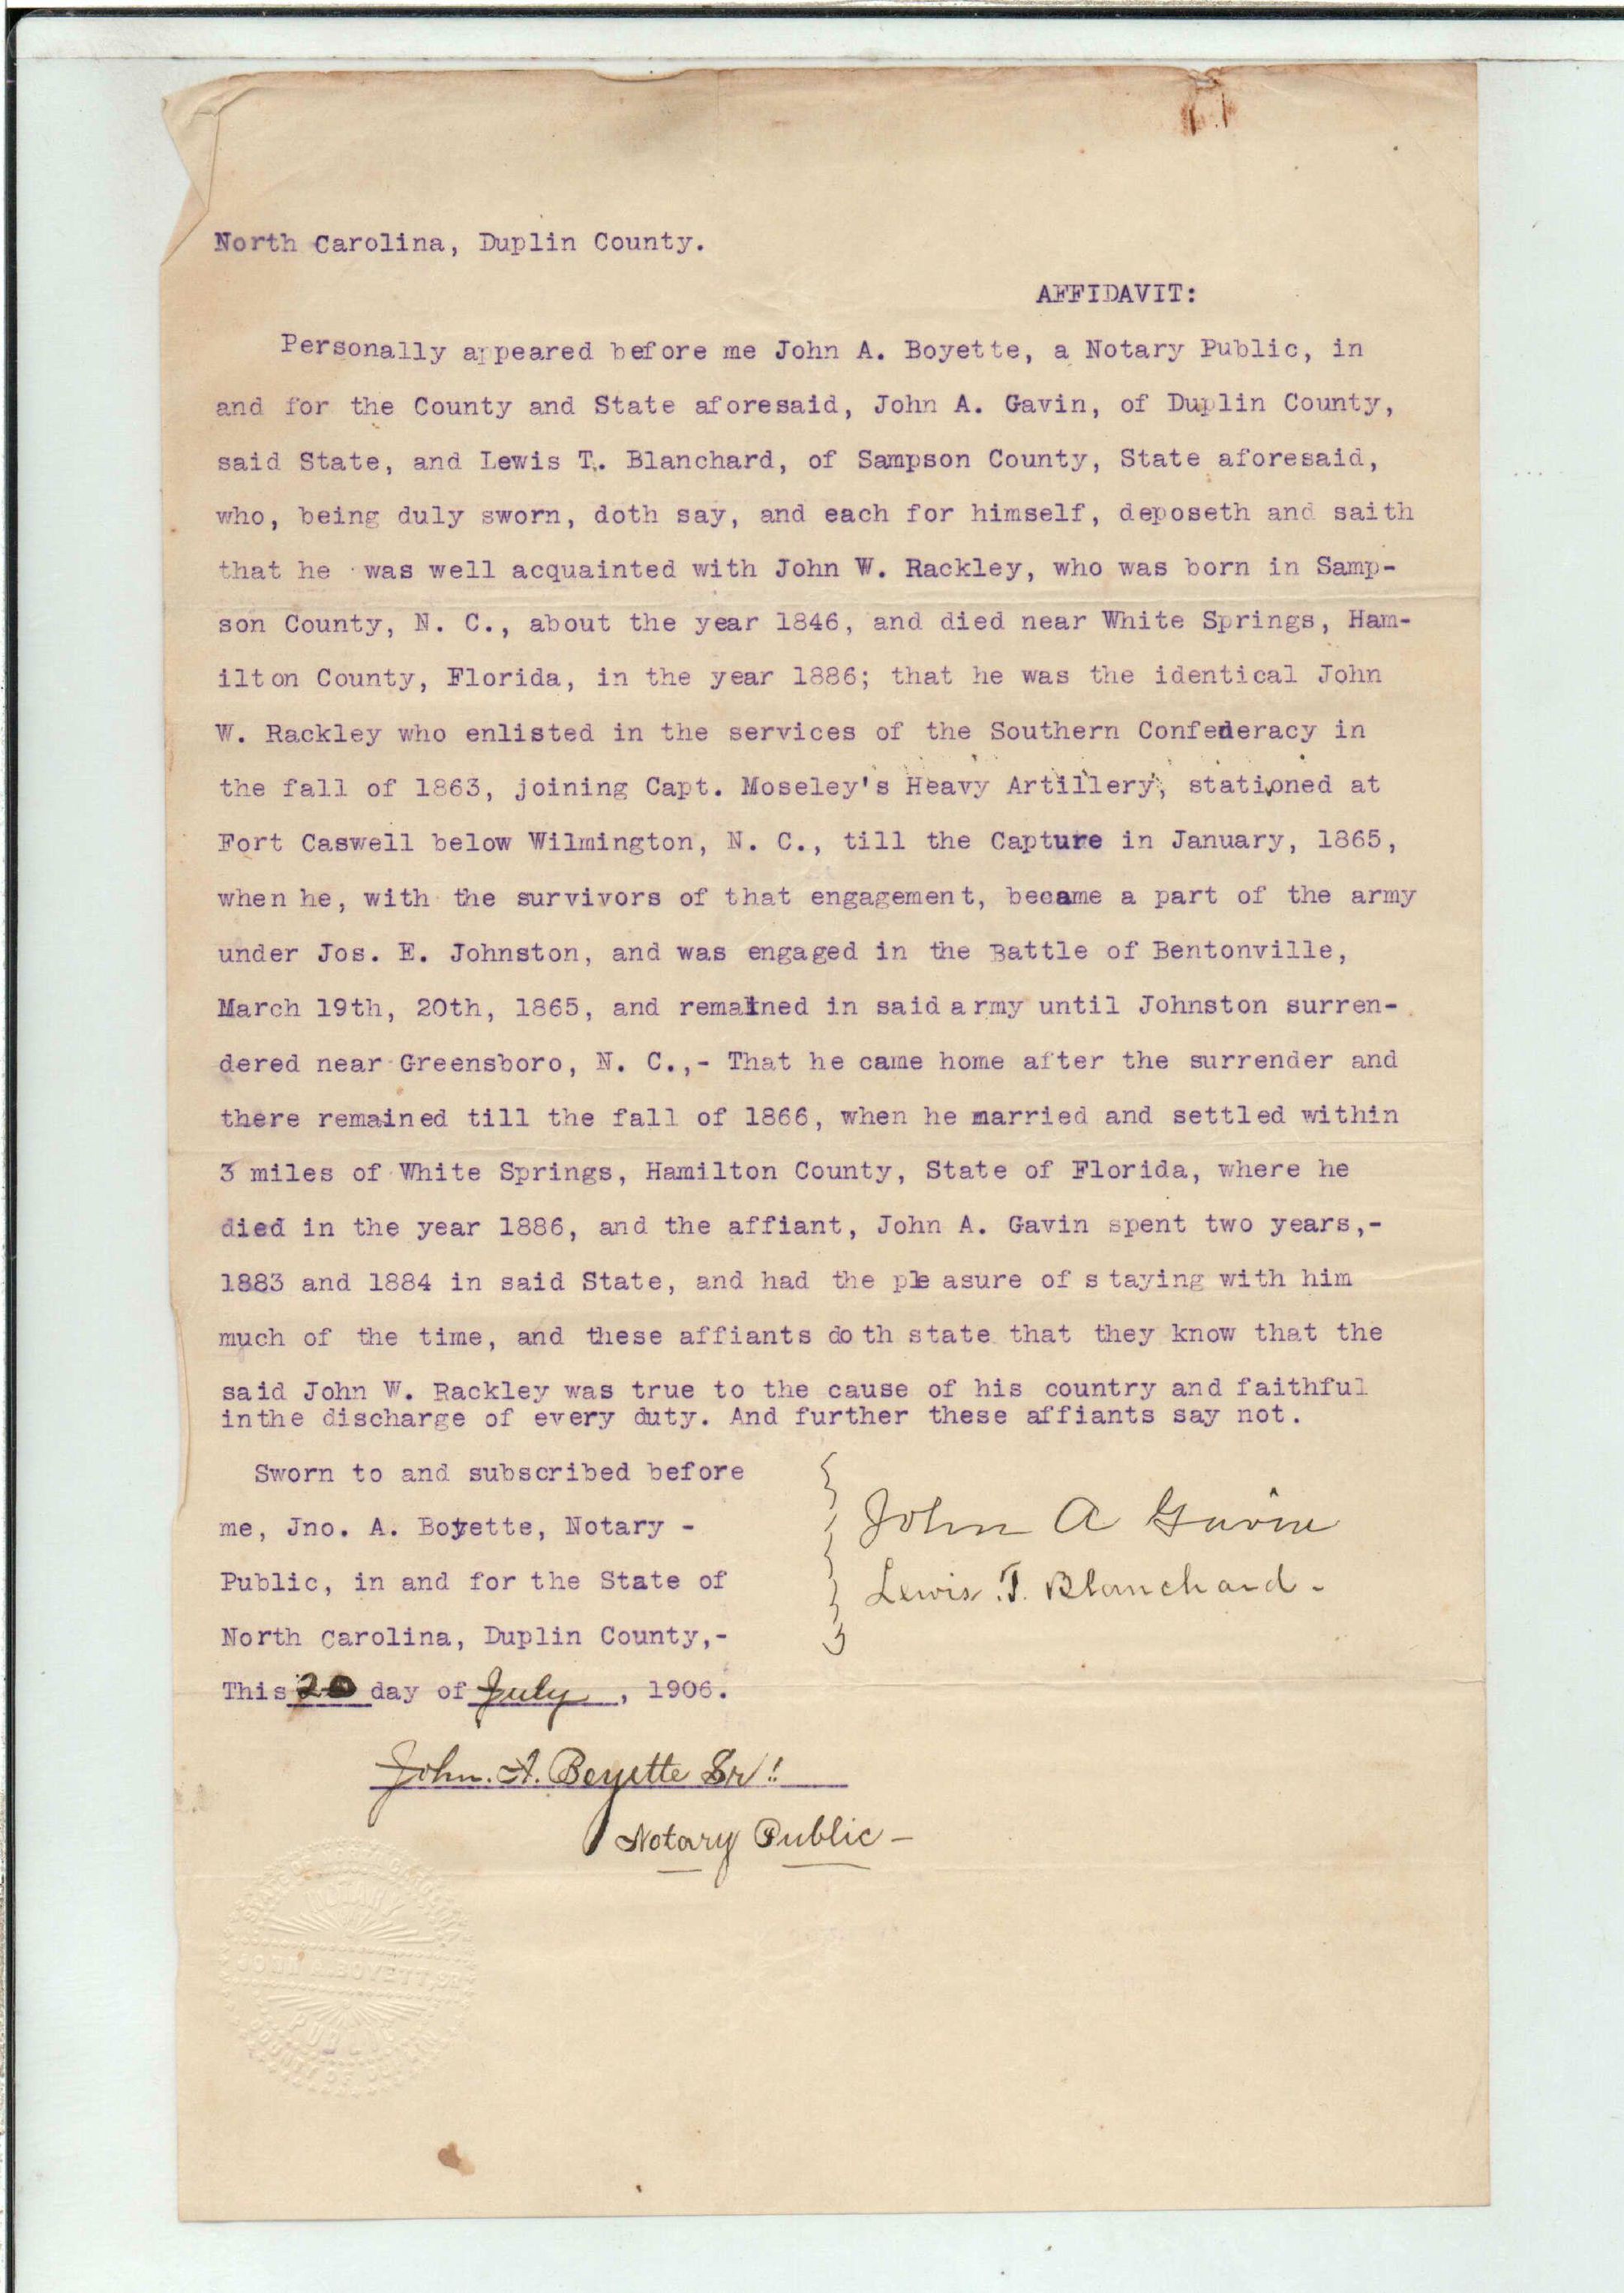 North Carolina, Duplin County.
AFFIDAVIT:
Personally appeared before me John A. Boyette, a Notary Public, in
and for the County and State aforesaid, John A. Gavin, of Duplin County,
said State, and Lewis T. Blanchard, of Sampson County, State aforesaid,
who, being duly sworn, doth say, and each for himself, deposeth and saith
that he was well acquainted with John W. Rackley, who was born in Samp-
son County, N. C., about the year 1846, and died near White Springs, Ham-
ilton County, Florida, in the year 1886; that he was the identical John
W. Rackley who enlisted in the services of the Southern Confederacy in
the fall of 1863, joining Capt. Moseley's Heavy Artillery, stationed at
Fort Caswell below Wilmington, N. C., till the Capture in January, 1865,
when he, with the survivors of that engagement, became a part of the army
under Jos. E. Johnston, and was engaged in the Battle of Bentonville,
March 19th, 20th, 1865, and remained in said army until Johnston surren-
dered near Greensboro, N. C.,- That he came home after the surrender and
there remained till the fall of 1866, when he married and settled within
3 miles of White Springs, Hamilton County, State of Florida, where he
died in the year 1886, and the affiant, John A. Gavin spent two years,-
1883 and 1884 in said State, and had the pleasure of staying with him
much of the time, and these affiants doth state that they know that the
said John W. Rackley was true to the cause of his country and faithful
inthe discharge of every duty. And further these affiants say not.
Sworn to and subscribed before
me, Jno. A. Boyette, Notary -
Public, in and for the State of
North Carolina, Duplin County,-
This 20 day of July, 1906.
John A Gavin
Lewis. T. Blanchard -
John. A. Boyette Sr.
Notary Public -
NOTARY
JOHN A. BOYETT, SR
PUBLIC
COUNTY OF DUPLIN